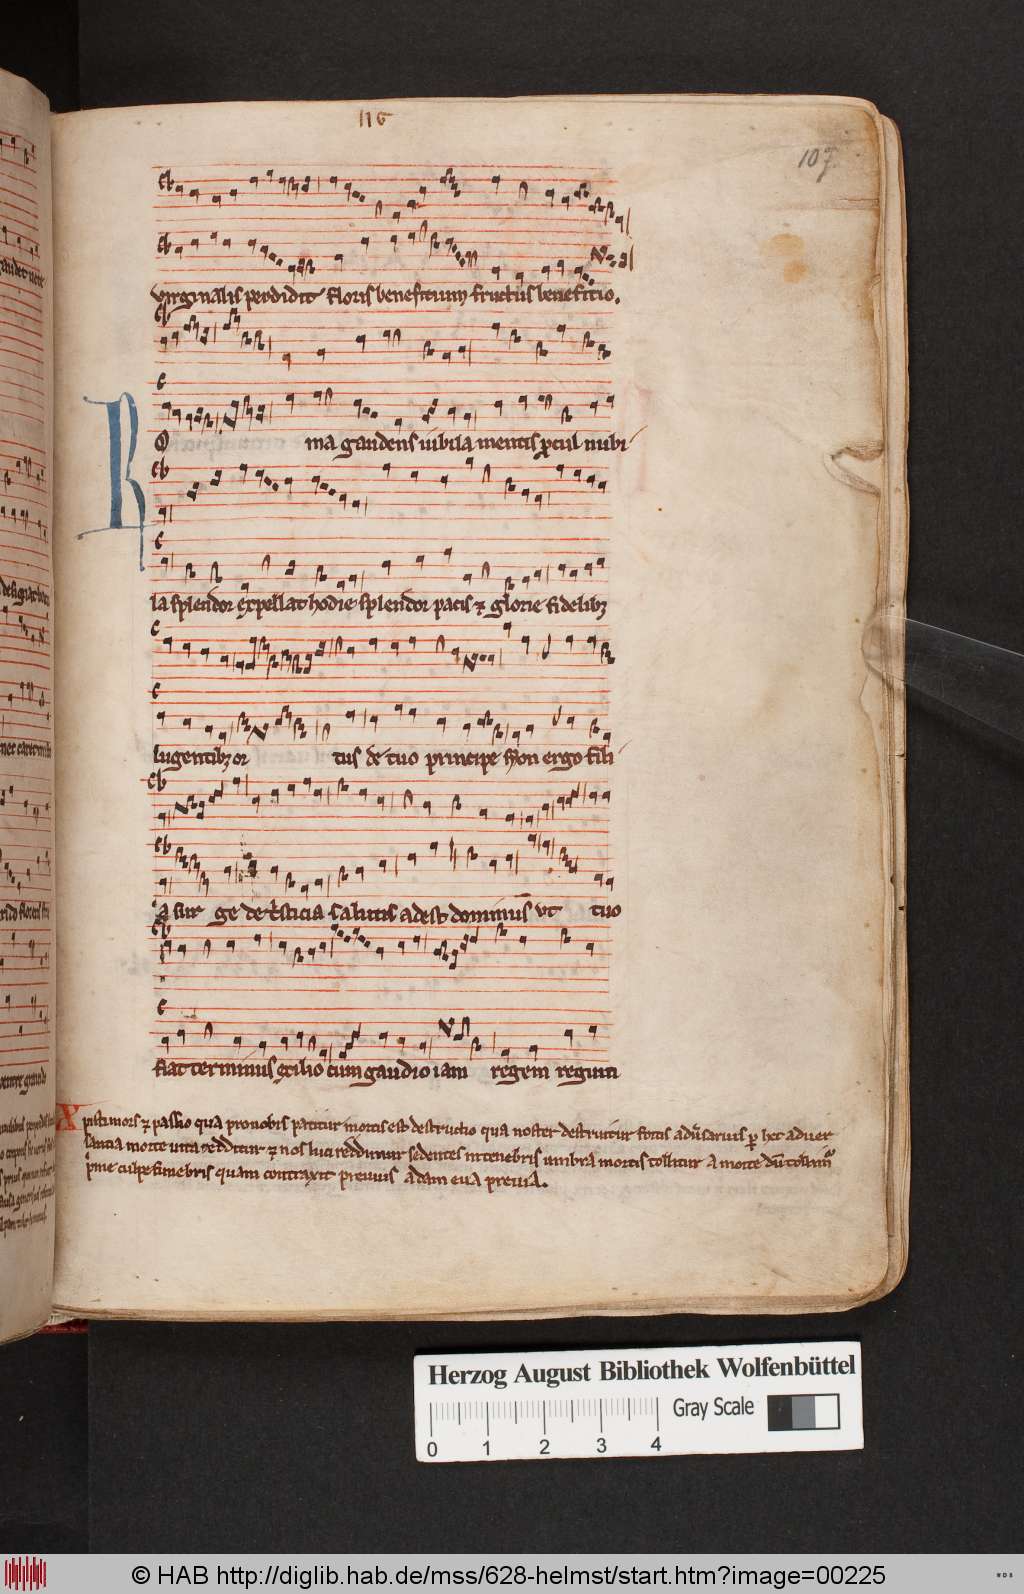 116
107
virginalis perdidit floris benefitium fructus benefitio.
Roma gaudens iubila mentis procul nubi
la splendor expellat hodie splendor pacis ⁊ glorie fidelibꝫ
lugentibꝫ or tus de tuo principe syon ergo fili
a sur ge de tristicia salutis adest dominus ut tuo
fiat terminus exilio cum gaudio iam regem regum
Xpisti mors ⁊ passio qua pro nobis patitur mortis est destructio qua noster destruitur fortis aduersarius per hec aduer
santia morte uita redditur ⁊ nos luci reddimur sedentes in tenebris umbra mortis tollitur a morte
prime culpe funebris quam contraxit preuius adam eua preuia.
Herzog August Bibliothek Wolfenbüttel
Gray Scale
0 1 2 3 4
© HAB http://diglib.hab.de/mss/628-helmst/start.htm?image=00225